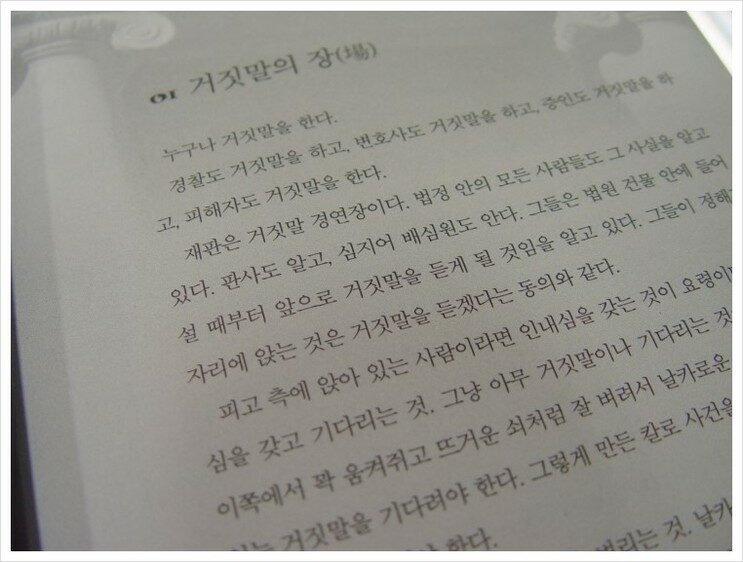 01 거짓말의 장(場)
누구나 거짓말을 한다.
경찰도 거짓말을 하고, 변호사도 거짓말을 하고, 증인도 거짓말을 하
고, 피해자도 거짓말을 한다.
재판은 거짓말 경연장이다. 법정 안의 모든 사람들도 그 사실을 알고
있다. 판사도 알고, 심지어 배심원도 안다. 그들은 법원 건물 안에 들어
설 때부터 앞으로 거짓말을 듣게 될 것임을 알고 있다. 그들이 정해
자리에 앉는 것은 거짓말을 듣겠다는 동의와 같다.
피고 측에 앉아 있는 사람이라면 인내심을 갖는 것이 요령이
심을 갖고 기다리는 것. 그냥 아무 거짓말이나 기다리는 것
이쪽에서 꽉 움켜쥐고 뜨거운 쇠처럼 잘 벼려서 날카로운
있는 거짓말을 기다려야 한다. 그렇게 만든 칼로 사건을
한다. 버리는 것. 날카